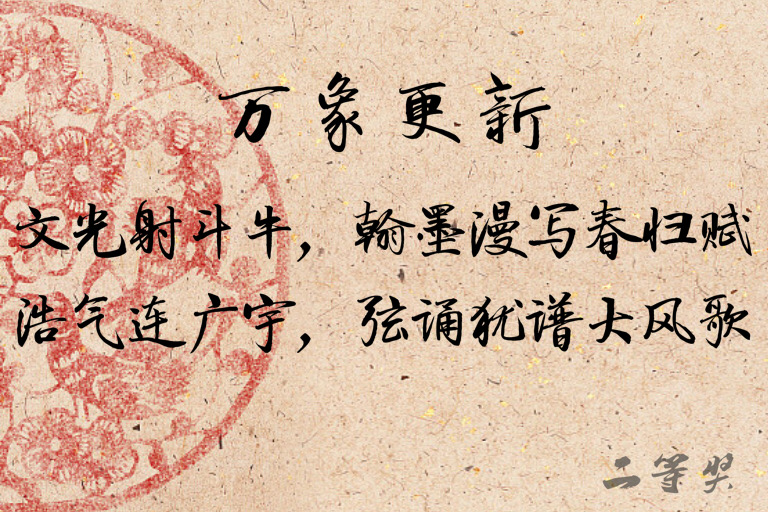 万象更新
文光射斗牛，翰墨漫写春归赋
浩气连广宇，弦诵犹谱大风歌
二等奖